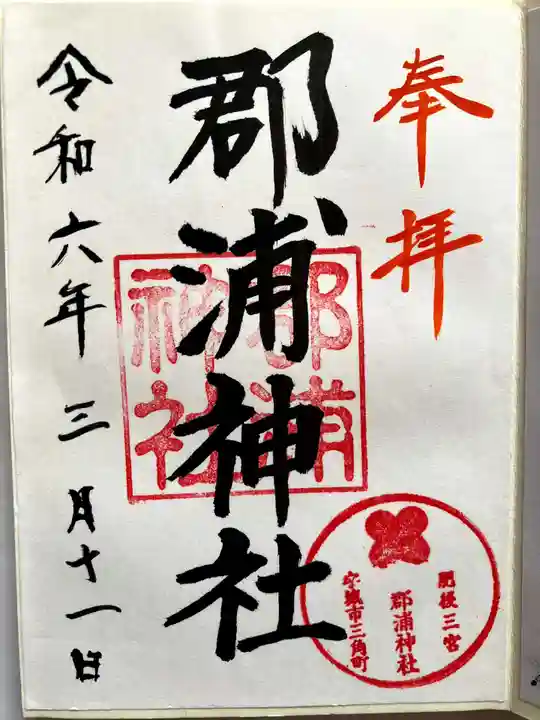 奉拝
郡浦神社
郡浦
神社
令和六年三月十一日
肥後三宮
郡浦神社
宇城市三角町